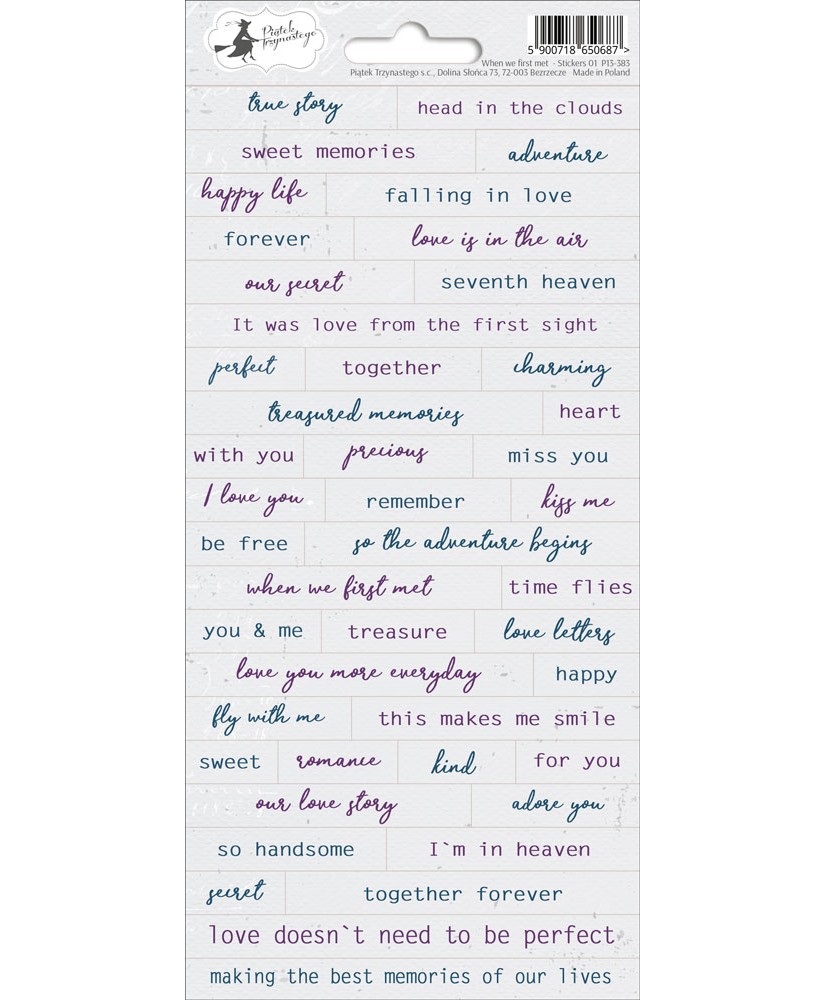 Piątek Trzynastego
5 900718 650687 >
When we first met - Stickers 01 P13-383
Piątek Trzynastego s.c., Dolina Słońca 73, 72-003 Bezrzecze Made in Poland
true story head in the clouds
sweet memories adventure
happy life falling in love
forever love is in the air
our secret seventh heaven
It was love from the first sight
perfect together charming
treasured memories heart
with you precious miss you
I love you remember kiss me
be free so the adventure begins
when we first met time flies
you & me treasure love letters
love you more everyday happy
fly with me this makes me smile
sweet romance kind for you
our love story adore you
so handsome I`m in heaven
secret together forever
love doesn`t need to be perfect
making the best memories of our lives